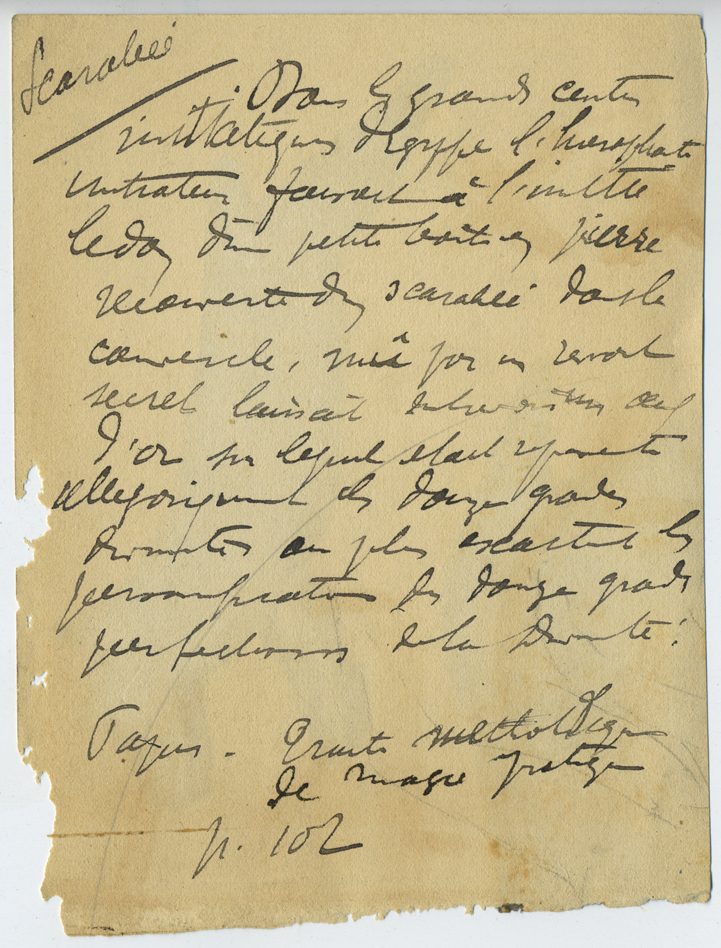 Scarabée
Dans les grands centres
initiatiques d'Egypte l'hierophante
initiateur faisait à l'initié
le don d'une petite boite en pierre
recouverte d'un scarabée dont le
couvercle, mû par un ressort
secret laissait entrevoir un œuf
d'or sur lequel etait representé
allegoriquement les douze grandes
divinités ou plus exactement les
personnifications des douze grandes
perfections de la Divinité.
Papus - Traité methodique
de magie pratique
p. 102